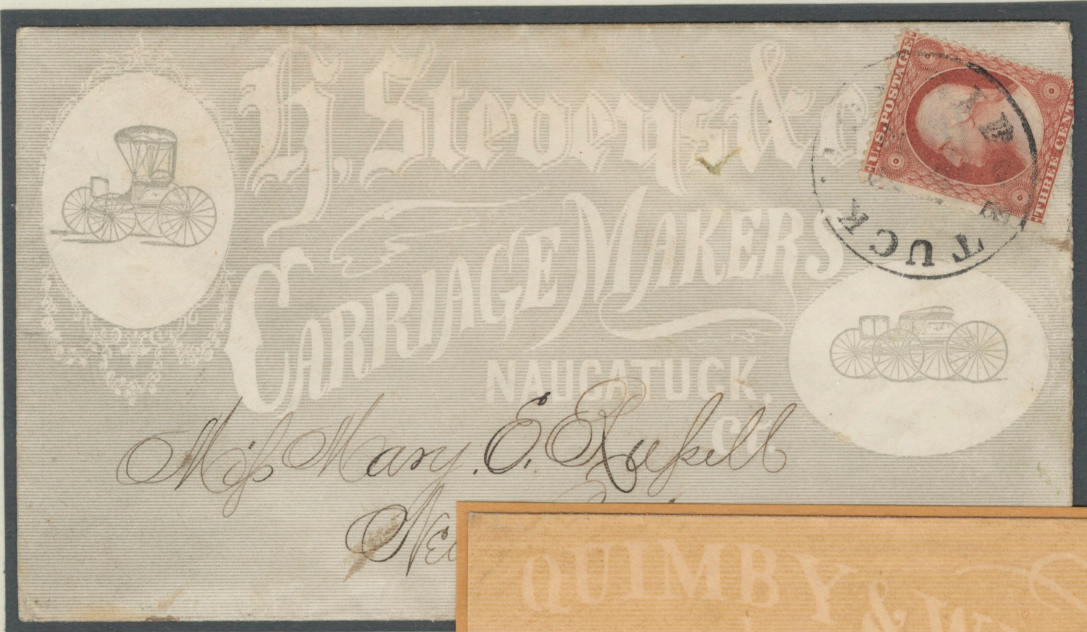 H. Stevens & C
CARRIAGE MAKERS
NAUGATUCK,
Ct.
U.S. POSTAGE
THREE CENTS
TUCK
Miſs Mary. E. Ruſsell
QUIMBY & W